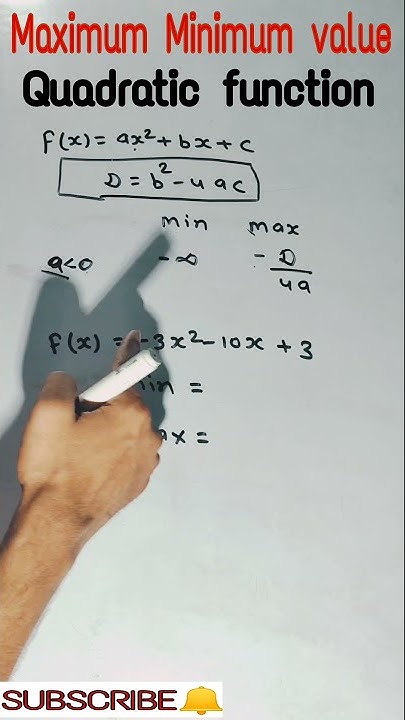 Maximum Minimum value
Quadratic function
f(x) = ax² + bx + c
D = b² - 4ac
min max
a<0 -∞ -D/4a
f(x) = -3x² - 10x + 3
in =
ax =
SUBSCRIBE